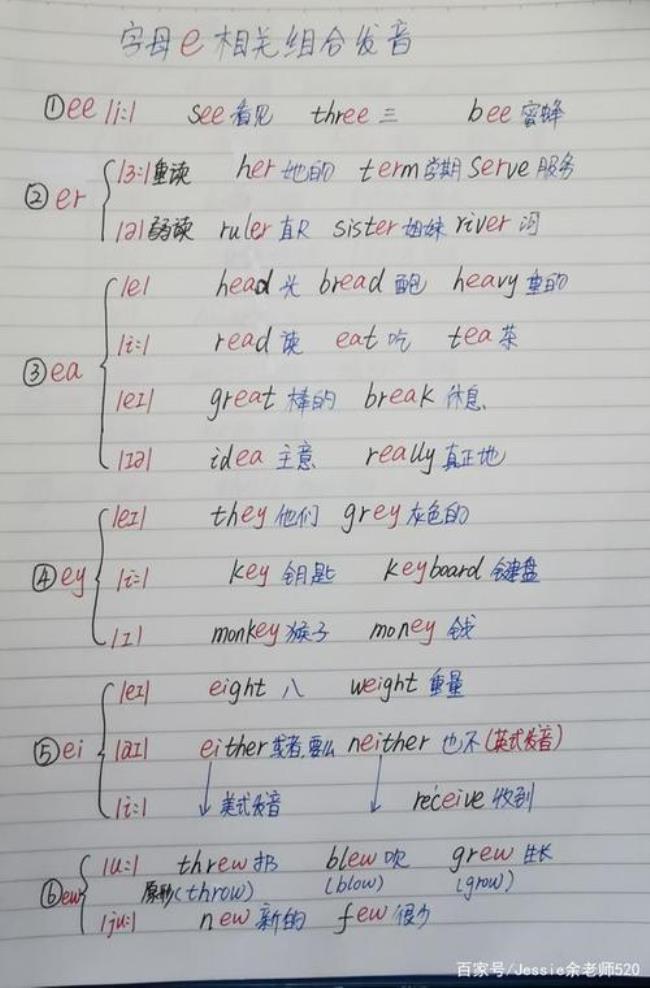 字母e相关组合发音
①ee |i:| see 看见 three 三 bee 蜜蜂
②er |ɜ:| 重读 her 她的 term 学期 serve 服务
|ə| 弱读 ruler 直尺 sister 姐妹 river 河
③ea |e| head 头 bread 面包 heavy 重的
|i:| read 读 eat 吃 tea 茶
|eɪ| great 棒的 break 休息
|ɪə| idea 主意 really 真正地
④ey |eɪ| they 他们 grey 灰色的
|i:| key 钥匙 keyboard 键盘
|ɪ| monkey 猴子 money 钱
⑤ei |eɪ| eight 八 weight 重量
|aɪ| either 或者,要么 neither 也不 (英式发音)
|i:| ↓ 美式发音 ↓ receive 收到
⑥ew |u:| threw 扔 blew 吹 grew 生长
原形(throw) (blow) (grow)
|ju:| new 新的 few 很少
百家号/Jessie余老师520